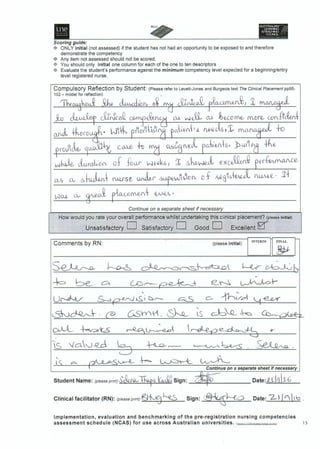 une
Scoring guide:
ONLY initial (not assessed) if the student has not had an opportunity to be exposed to and therefore
demonstrate the competency
Any item not assessed should not be scored.
You should only initial one column for each of the one to ten descriptors
Evaluate the student's performance against the minimum competency level expected for a beginning/entry
level registered nurse.
Compulsory Reflection by Student: (Please refer to Levett-Jones and Burgeois text The Clinical Placement pp95-
102 – model for reflection)
Throughout the duration of my clinical placement, I managed
to develop clinical competency as well as become more confident
and thorough. With prioritizing patient's needs, I managed to
provide quality care to my assigned patients. During the
whole duration of four weeks, I showed excellent performance
as a student nurse under supervision of registered nurse. It
was a great placement ever.
Continue on a separate sheet if necessary
How would you rate your overall performance whilst undertaking this clinical placement? (please initial)
Unsatisfactory Satisfactory Good Excellent
Comments by RN: (please initial) INTERIM FINAL
Selena has demonstrated her ability
to be a competent RN whilst
under supervision as a third year
student @ GSMH. She is able to complete
all tasks required independently &
is valued by the members. Selena
is a pleasure to work with
Continue on a separate sheet if necessary
Student Name: (please print) Selena Thapa Sign: Date: 21/9/16
Clinical facilitator (RN): (please print) B Hughes Sign: Date: 21/9/16
Implementation, evaluation and benchmarking of the pre-registration nursing competencies
assessment schedule (NCAS) for use across Australian universities.
15